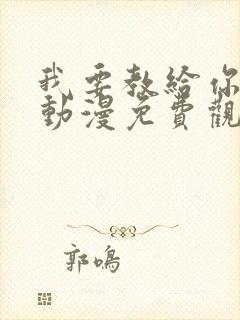 我要教給你
動漫免費觀
郭鳴